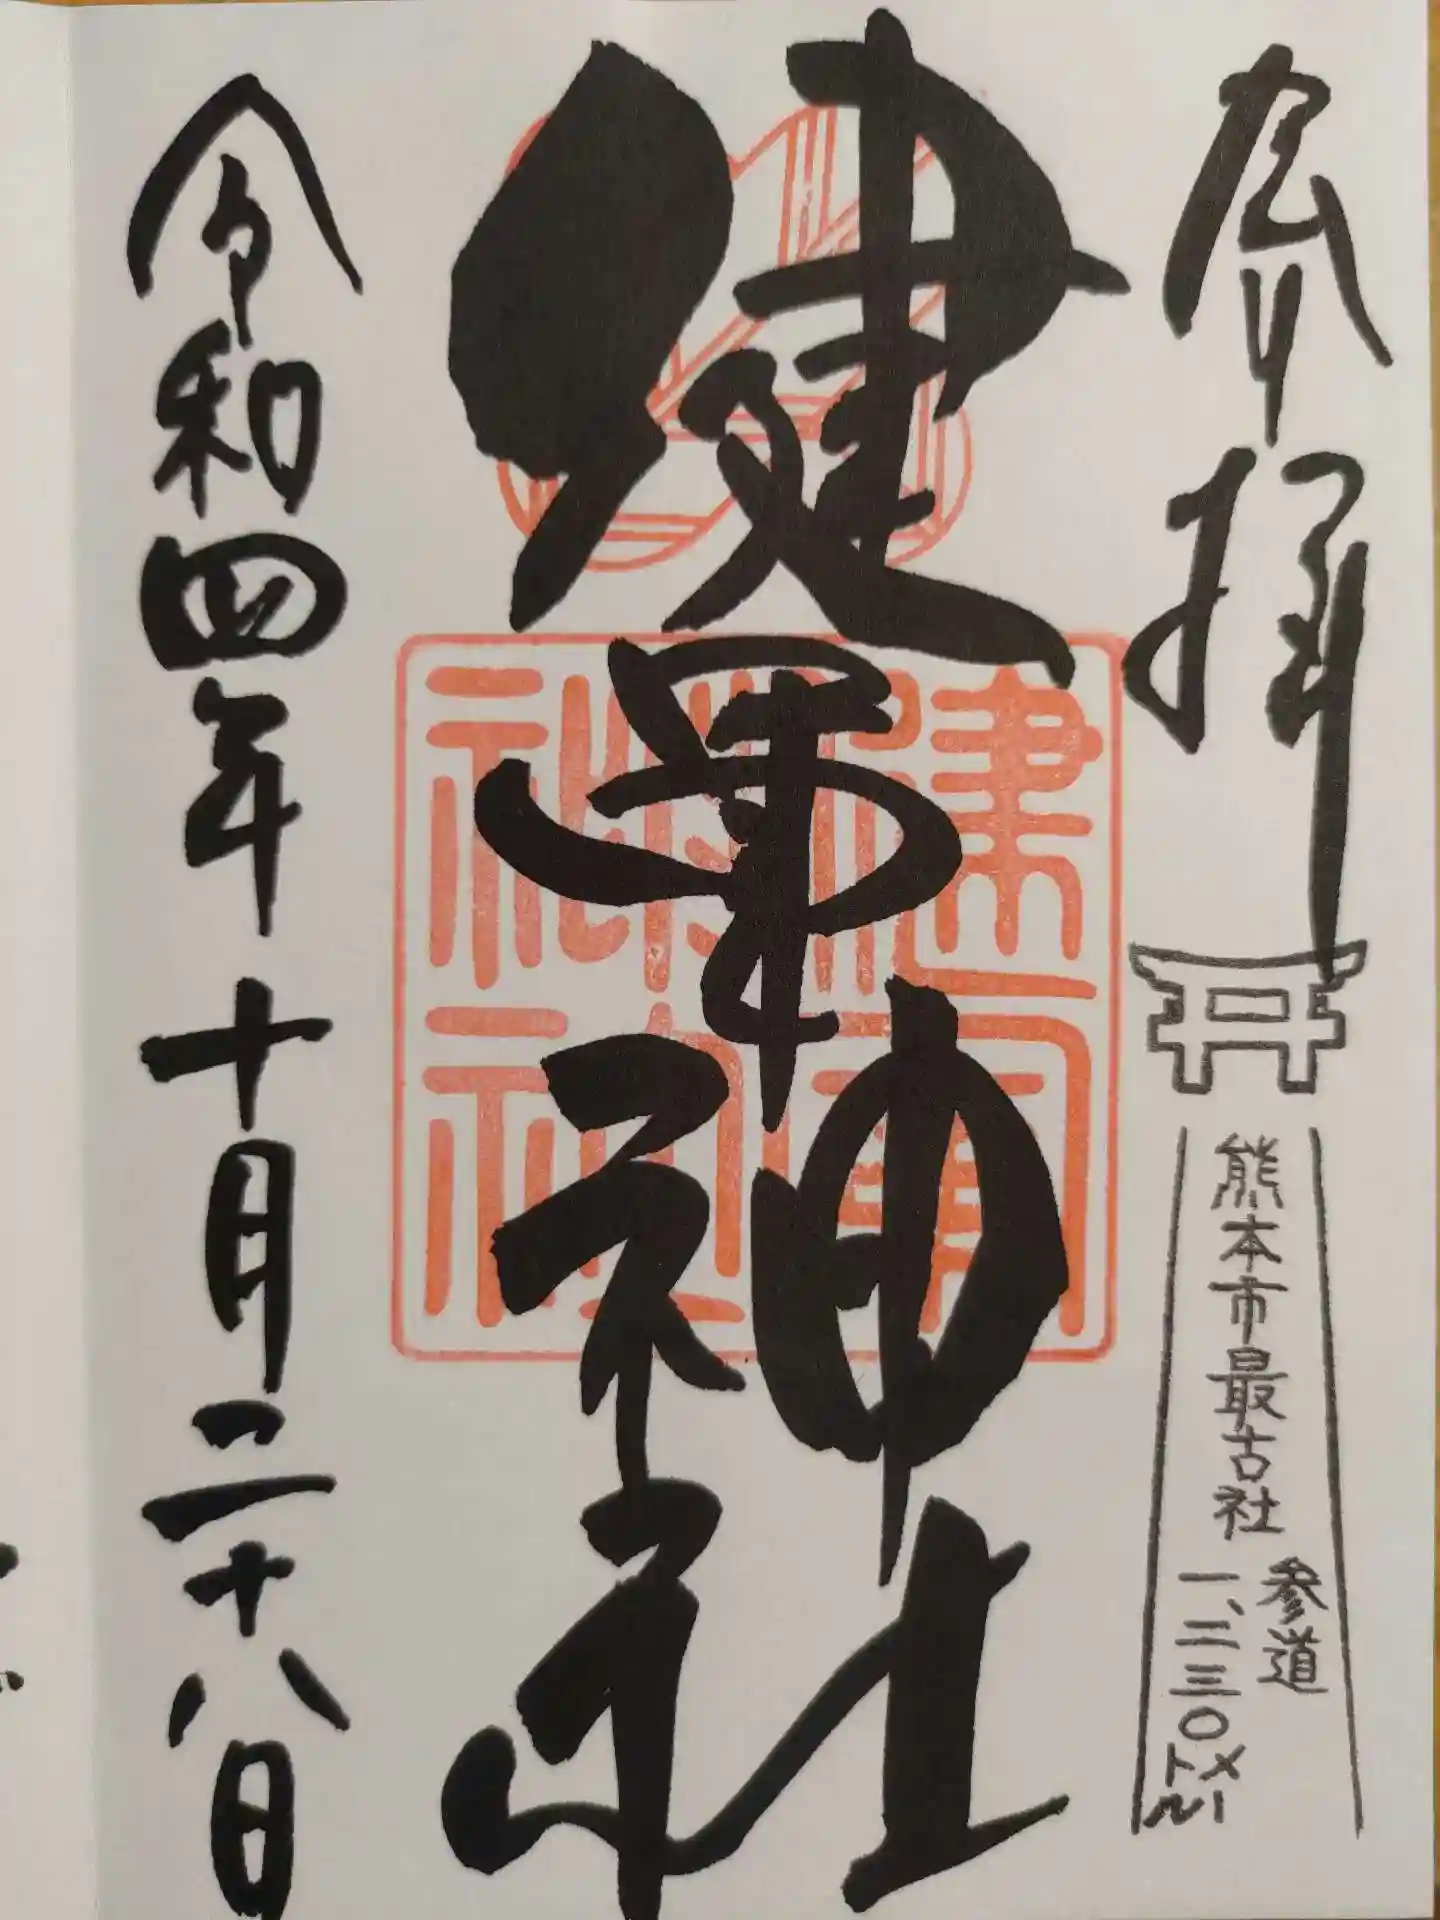 奉拝
熊本市最古社
参道
一、二三〇メートル
健軍神社
健軍神社
令和四年十月二十八日